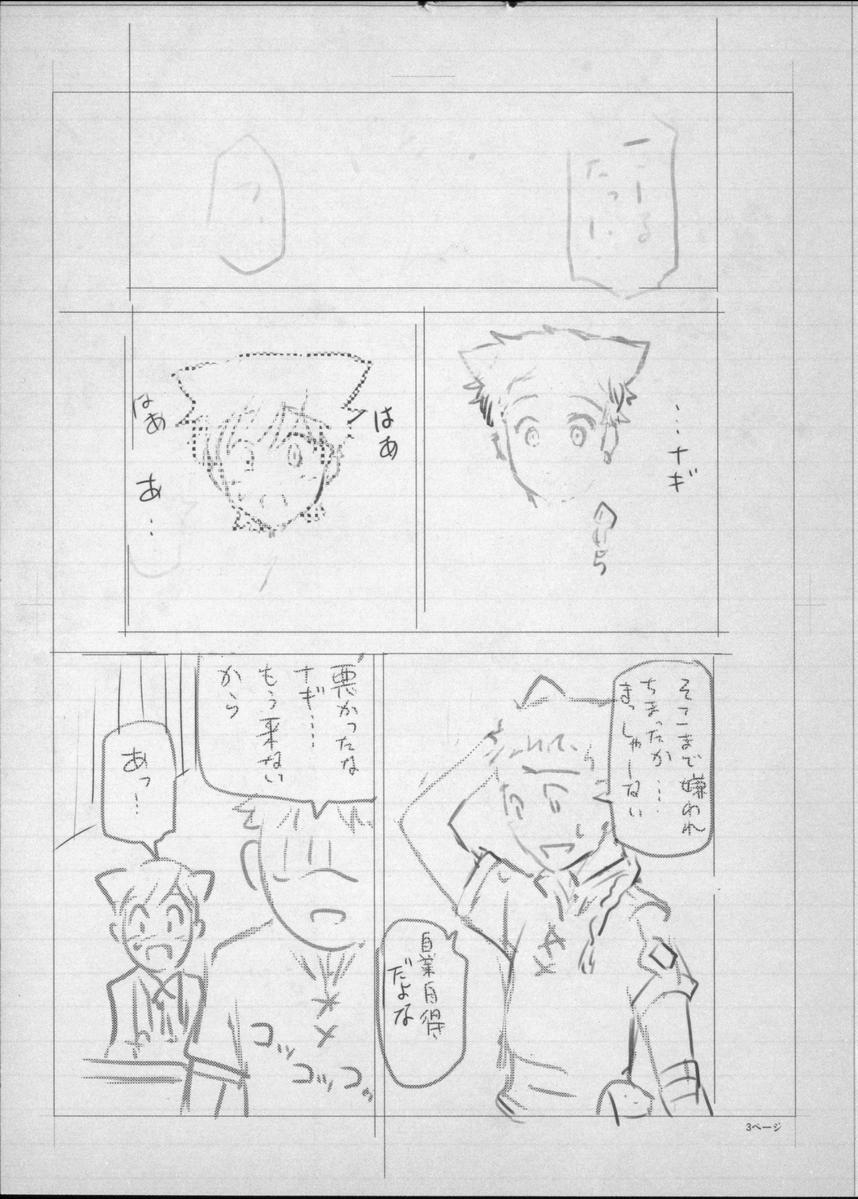 …ナギ
はあ
はあ
あ…
そこまで嫌われ
ちまったか…
まっしゃーない
自業自得
だよな
悪かったな
ナギ…
もう来ない
から
あっ…
コッ
コッコッ
3ページ